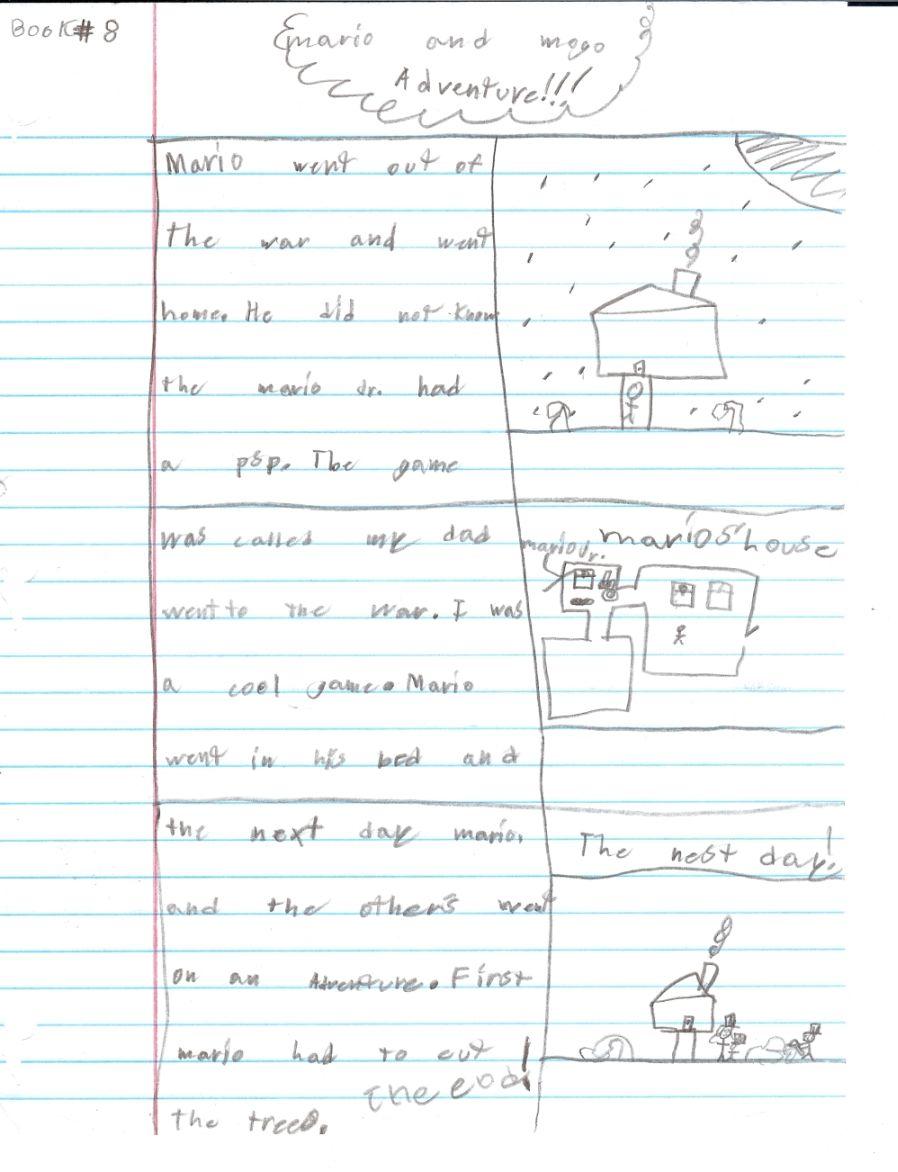 BOOK# 8
mario and mogo
Adventure!!!
Mario went out of
the war and went
home. He did not know
the mario dr. had
a psp. The game
was called my dad
went to the war. I was
a cool game. Mario
went in his bed and
the next day mario.
and the others went
on an Adventure. First
mario had to cut
the trees.
The end!
mario Jr.
marios' house
The nest day!